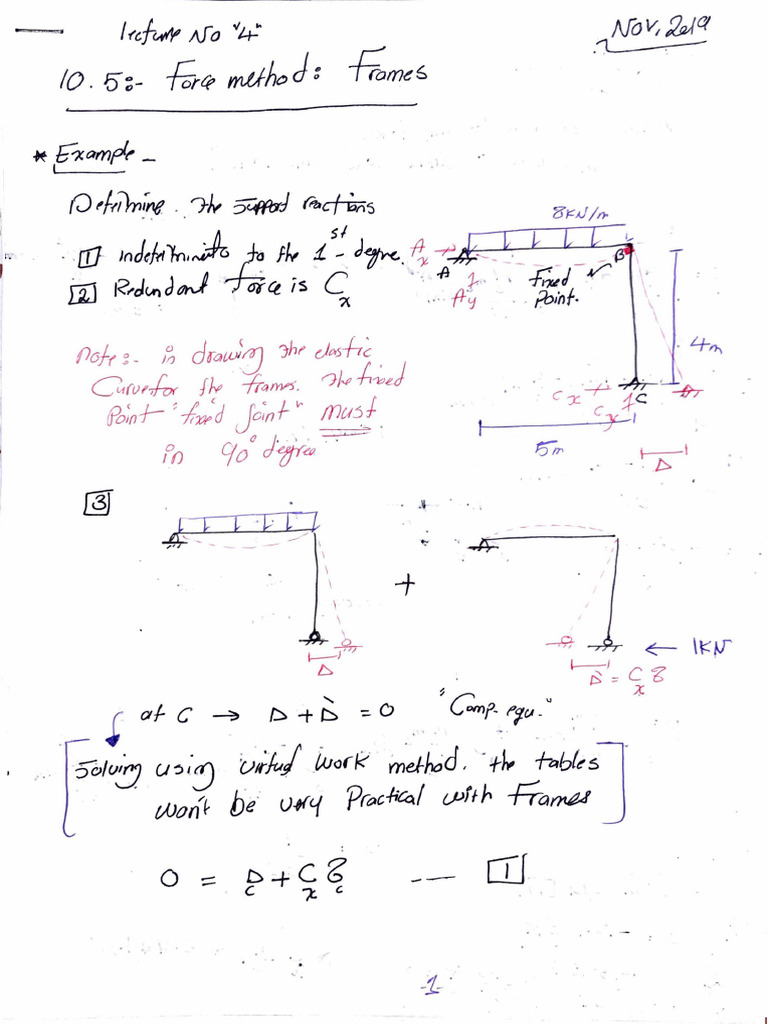 lecture No "4"
Nov, 2019
10.5:- Force method: Frames
* Example -
Determine the support reactions
1 indeterminate to the 1st degree.
2 Redundant force is Cx
Note:- in drawing the elastic
Curve for the frames. The fixed
Point "fixed Joint" must
in 90° degree
8KN/m
Ax
A
Ay
B
Fixed
Point.
4m
Cx
C
Cy
5m
Δ
3
+
Δ
1KN
Δ' = Cx δ
at C → Δ + Δ' = 0 "Comp. equ."
Solving using virtual work method. the tables
won't be very Practical with Frames
0 = Δc + Cx δc ---- 1
-1-